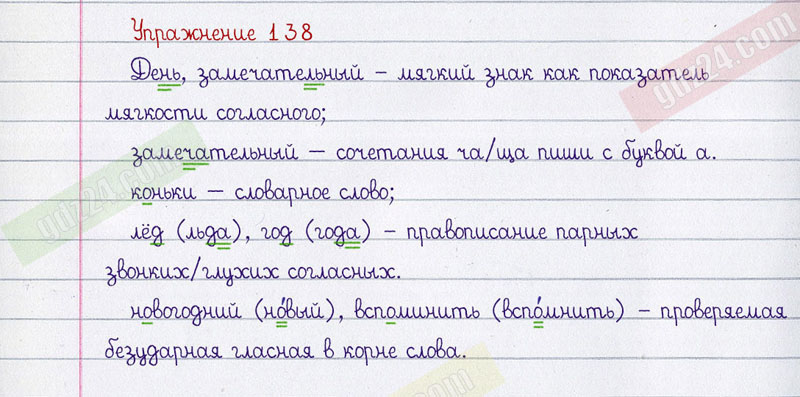 Упражнение 138
День, замечательный – мягкий знак как показатель
мягкости согласного;
замечательный – сочетания ча/ща пиши с буквой а.
коньки – словарное слово;
лёд (льда), год (года) – правописание парных
звонких/глухих согласных.
новогодний (но́вый), вспоминить (вспо́мнить) – проверяемая
безударная гласная в корне слова.
gdz24.com
gdz24.com